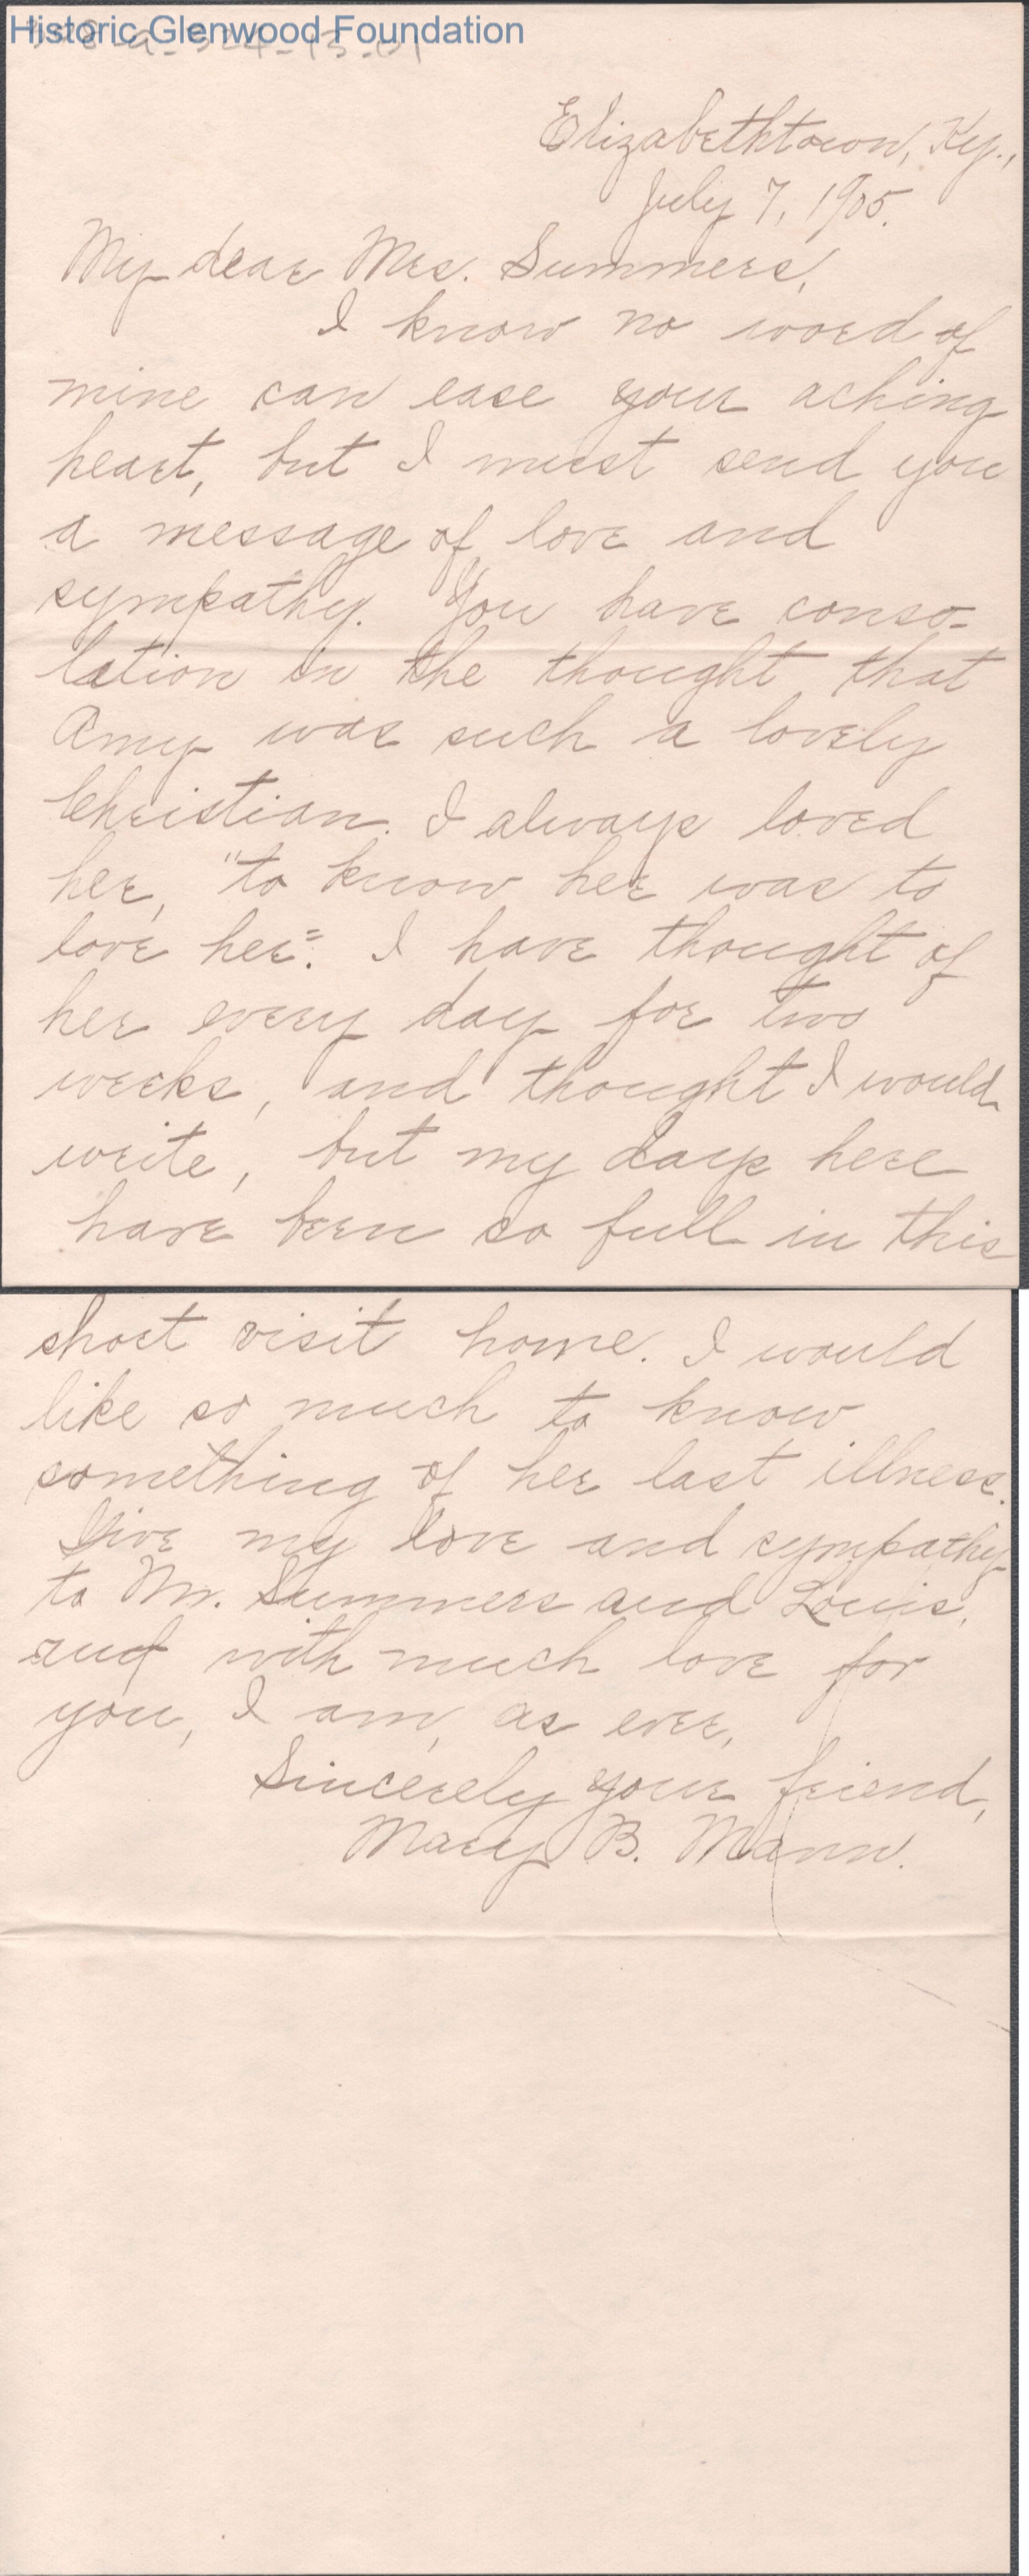 Historic Glenwood Foundation
Elizabethtown, Ky.,
July 7, 1905.
My dear Mrs. Summers,
I know no word of
mine can ease your aching
heart, but I must send you
a message of love and
sympathy. You have conso-
lation in the thought that
Amy was such a lovely
Christian. I always loved
her, "to know her was to
love her". I have thought of
her every day for two
weeks, and thought I would
write, but my days here
have been so full in this
short visit home. I would
like so much to know
something of her last illness.
Give my love and sympathy
to Mr. Summers and Louis,
and with much love for
you, I am, as ever,
Sincerely your friend,
Mary B. Mann.